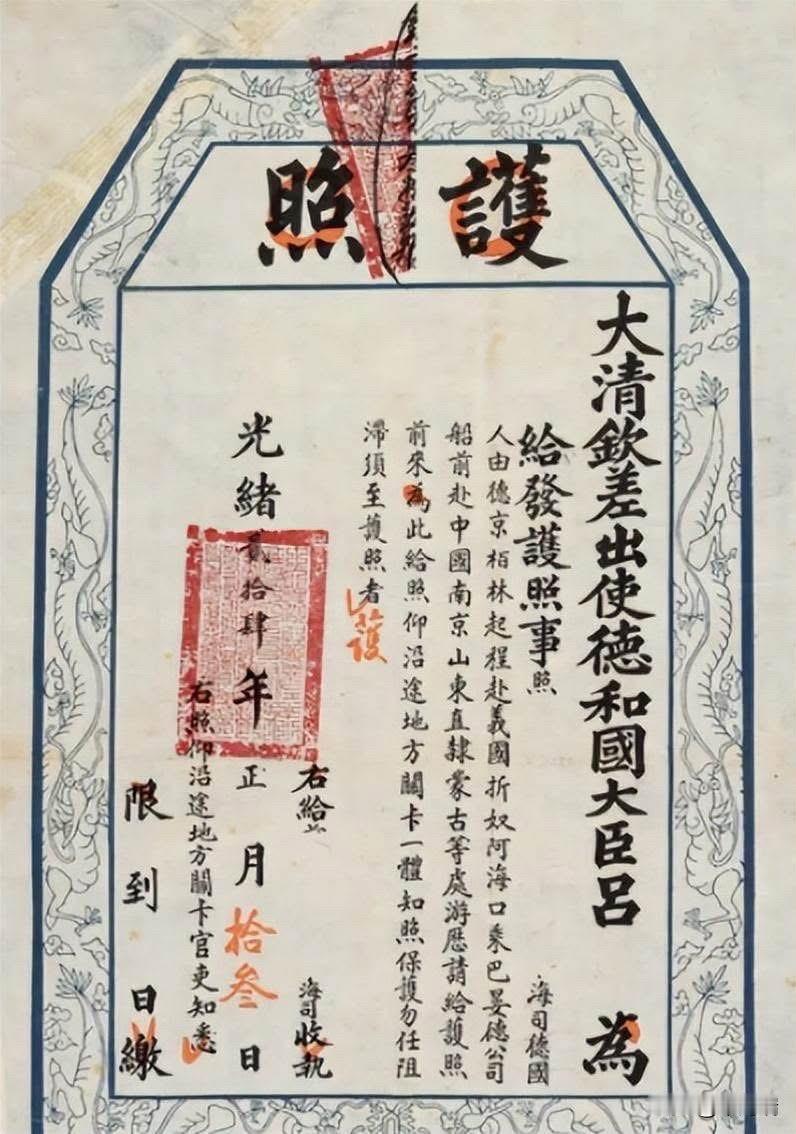 護照
大清欽差出使德和國大臣呂　為
給發護照事照　海司德國
人由德京栢林起程赴義國折奴阿海口乘巴晏德公司
船前赴中國南京山東直隸蒙古等處游歷請給護照
前來為此給照仰沿途地方關卡一體知照保護勿任阻
滯須至護照者
護
右給　海司收執
光緒貳拾肆年正月拾叁日
右照仰沿途地方關卡官吏知悉
限到　日繳